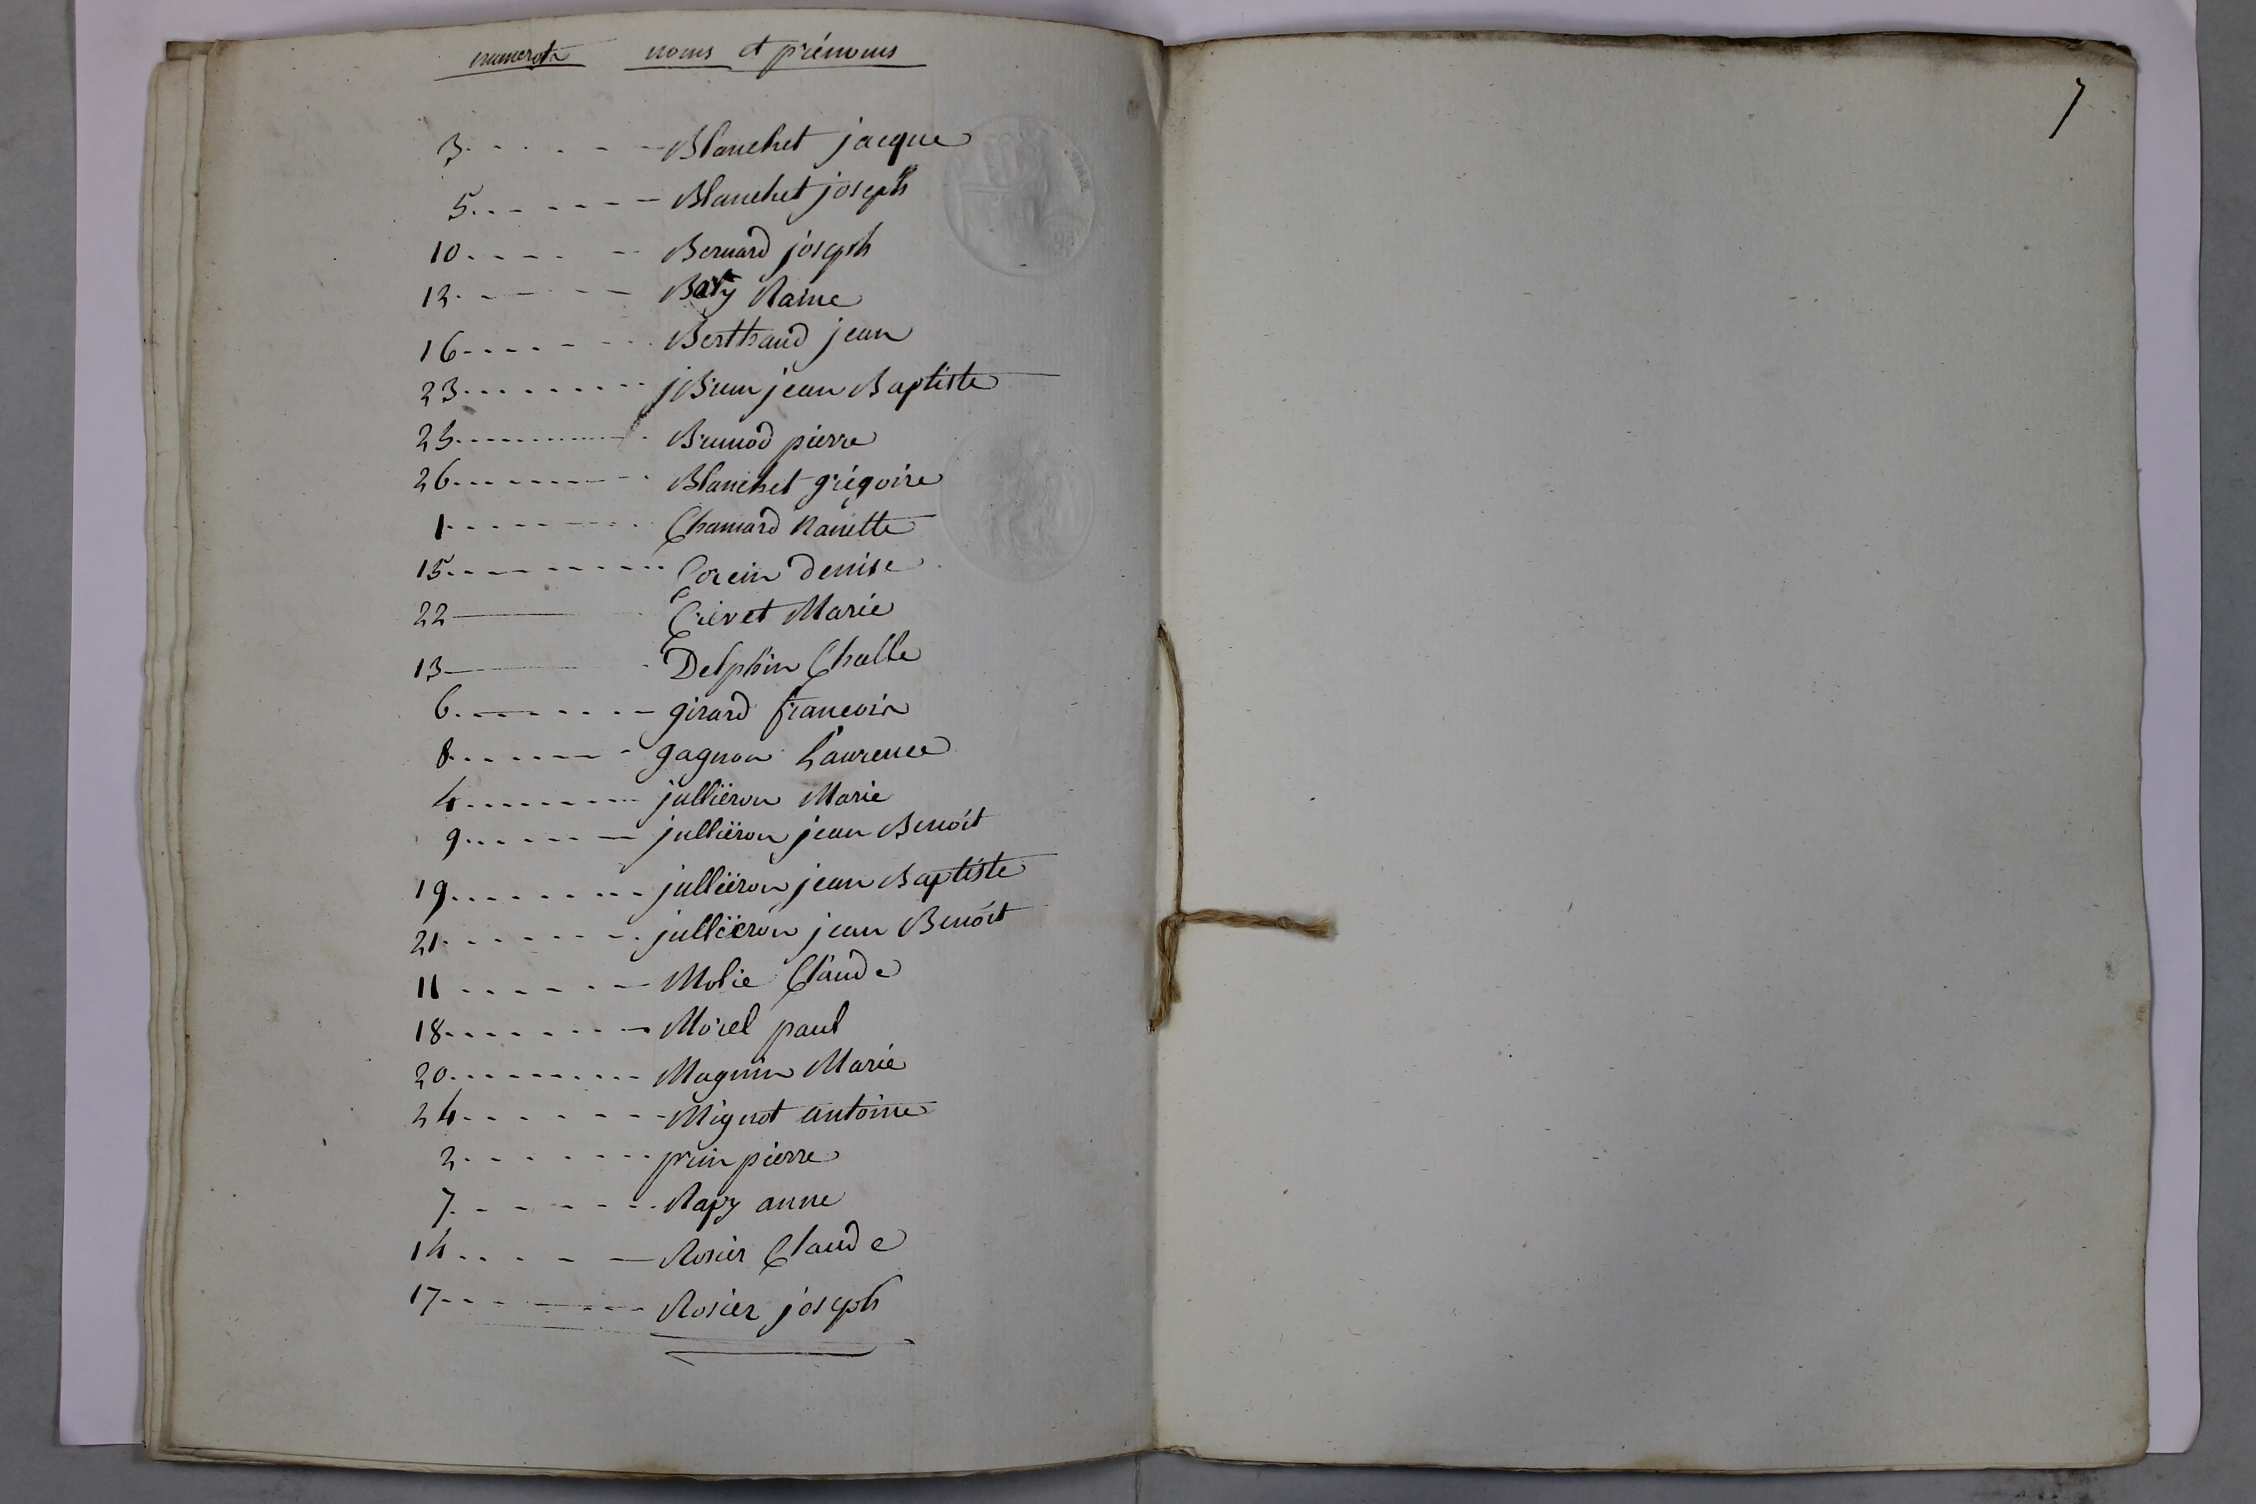 numerots noms et prénoms
3 Blanchet jacque
5 Blanchet joseph
10 Bernard joseph
12 Raine
16 Berthaud jean
23 Brun jean Baptiste
25 Brunod pierre
26 Blanchet grégoire
1 Chamard Nanette
15 Corcin denise
22 Crevet Marie
13 Delphin Challe
6 girard francois
8 gagnon Laurence
4 julliëron Marie
9 julliëron jean Benoit
19 julliëron jean Baptiste
21 julliëron jean Benoit
11 Molie Claude
18 Morel paul
20 Magnin Marie
24 Mignot antoine
2 prin pierre
7 Rapy anne
14 Rosier Claude
17 Rosier joseph
7